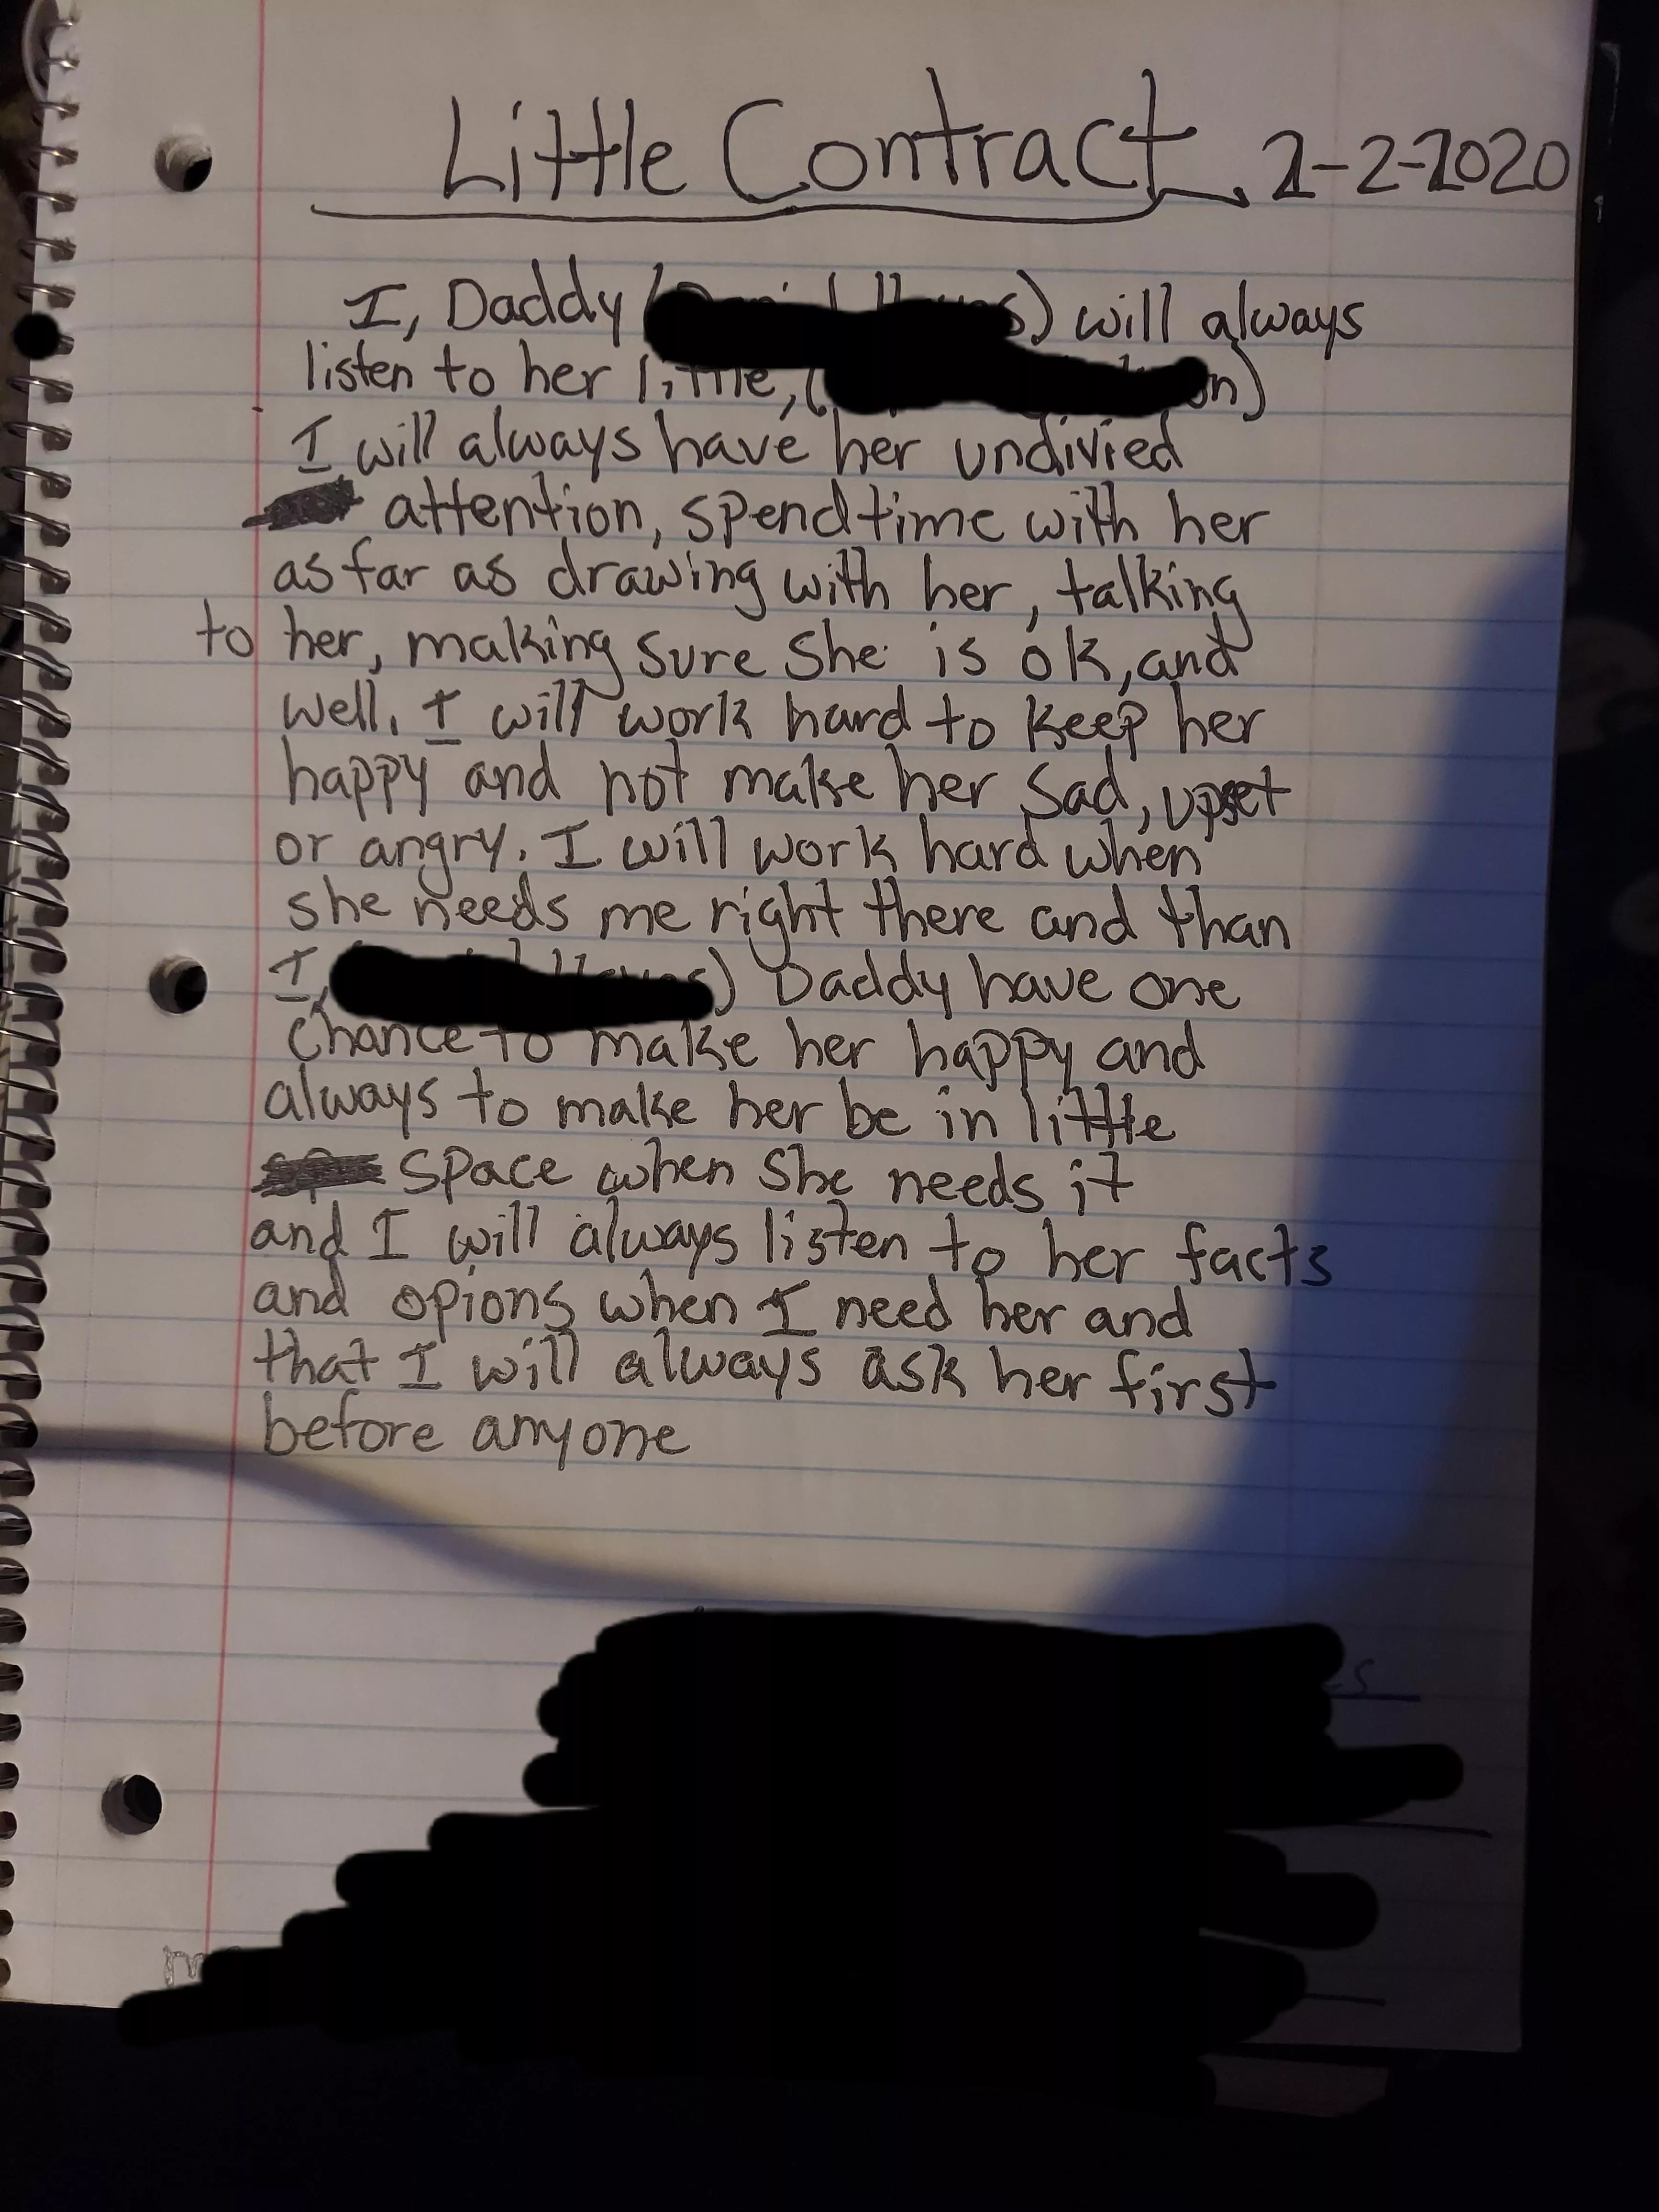 Little Contract 2-2-2020
I, Daddy ( ) will always
listen to her little, (
I will always have her undivied
attention, spend time with her
as far as drawing with her, talking
to her, making sure she is ok, and
well. I will work hard to keep her
happy and not make her sad, upset
or angry. I will work hard when
she needs me right there and than
I, ) Daddy have one
chance to make her happy and
always to make her be in little
space when she needs it
and I will always listen to her facts
and opions when I need her and
that I will always ask her first
before anyone